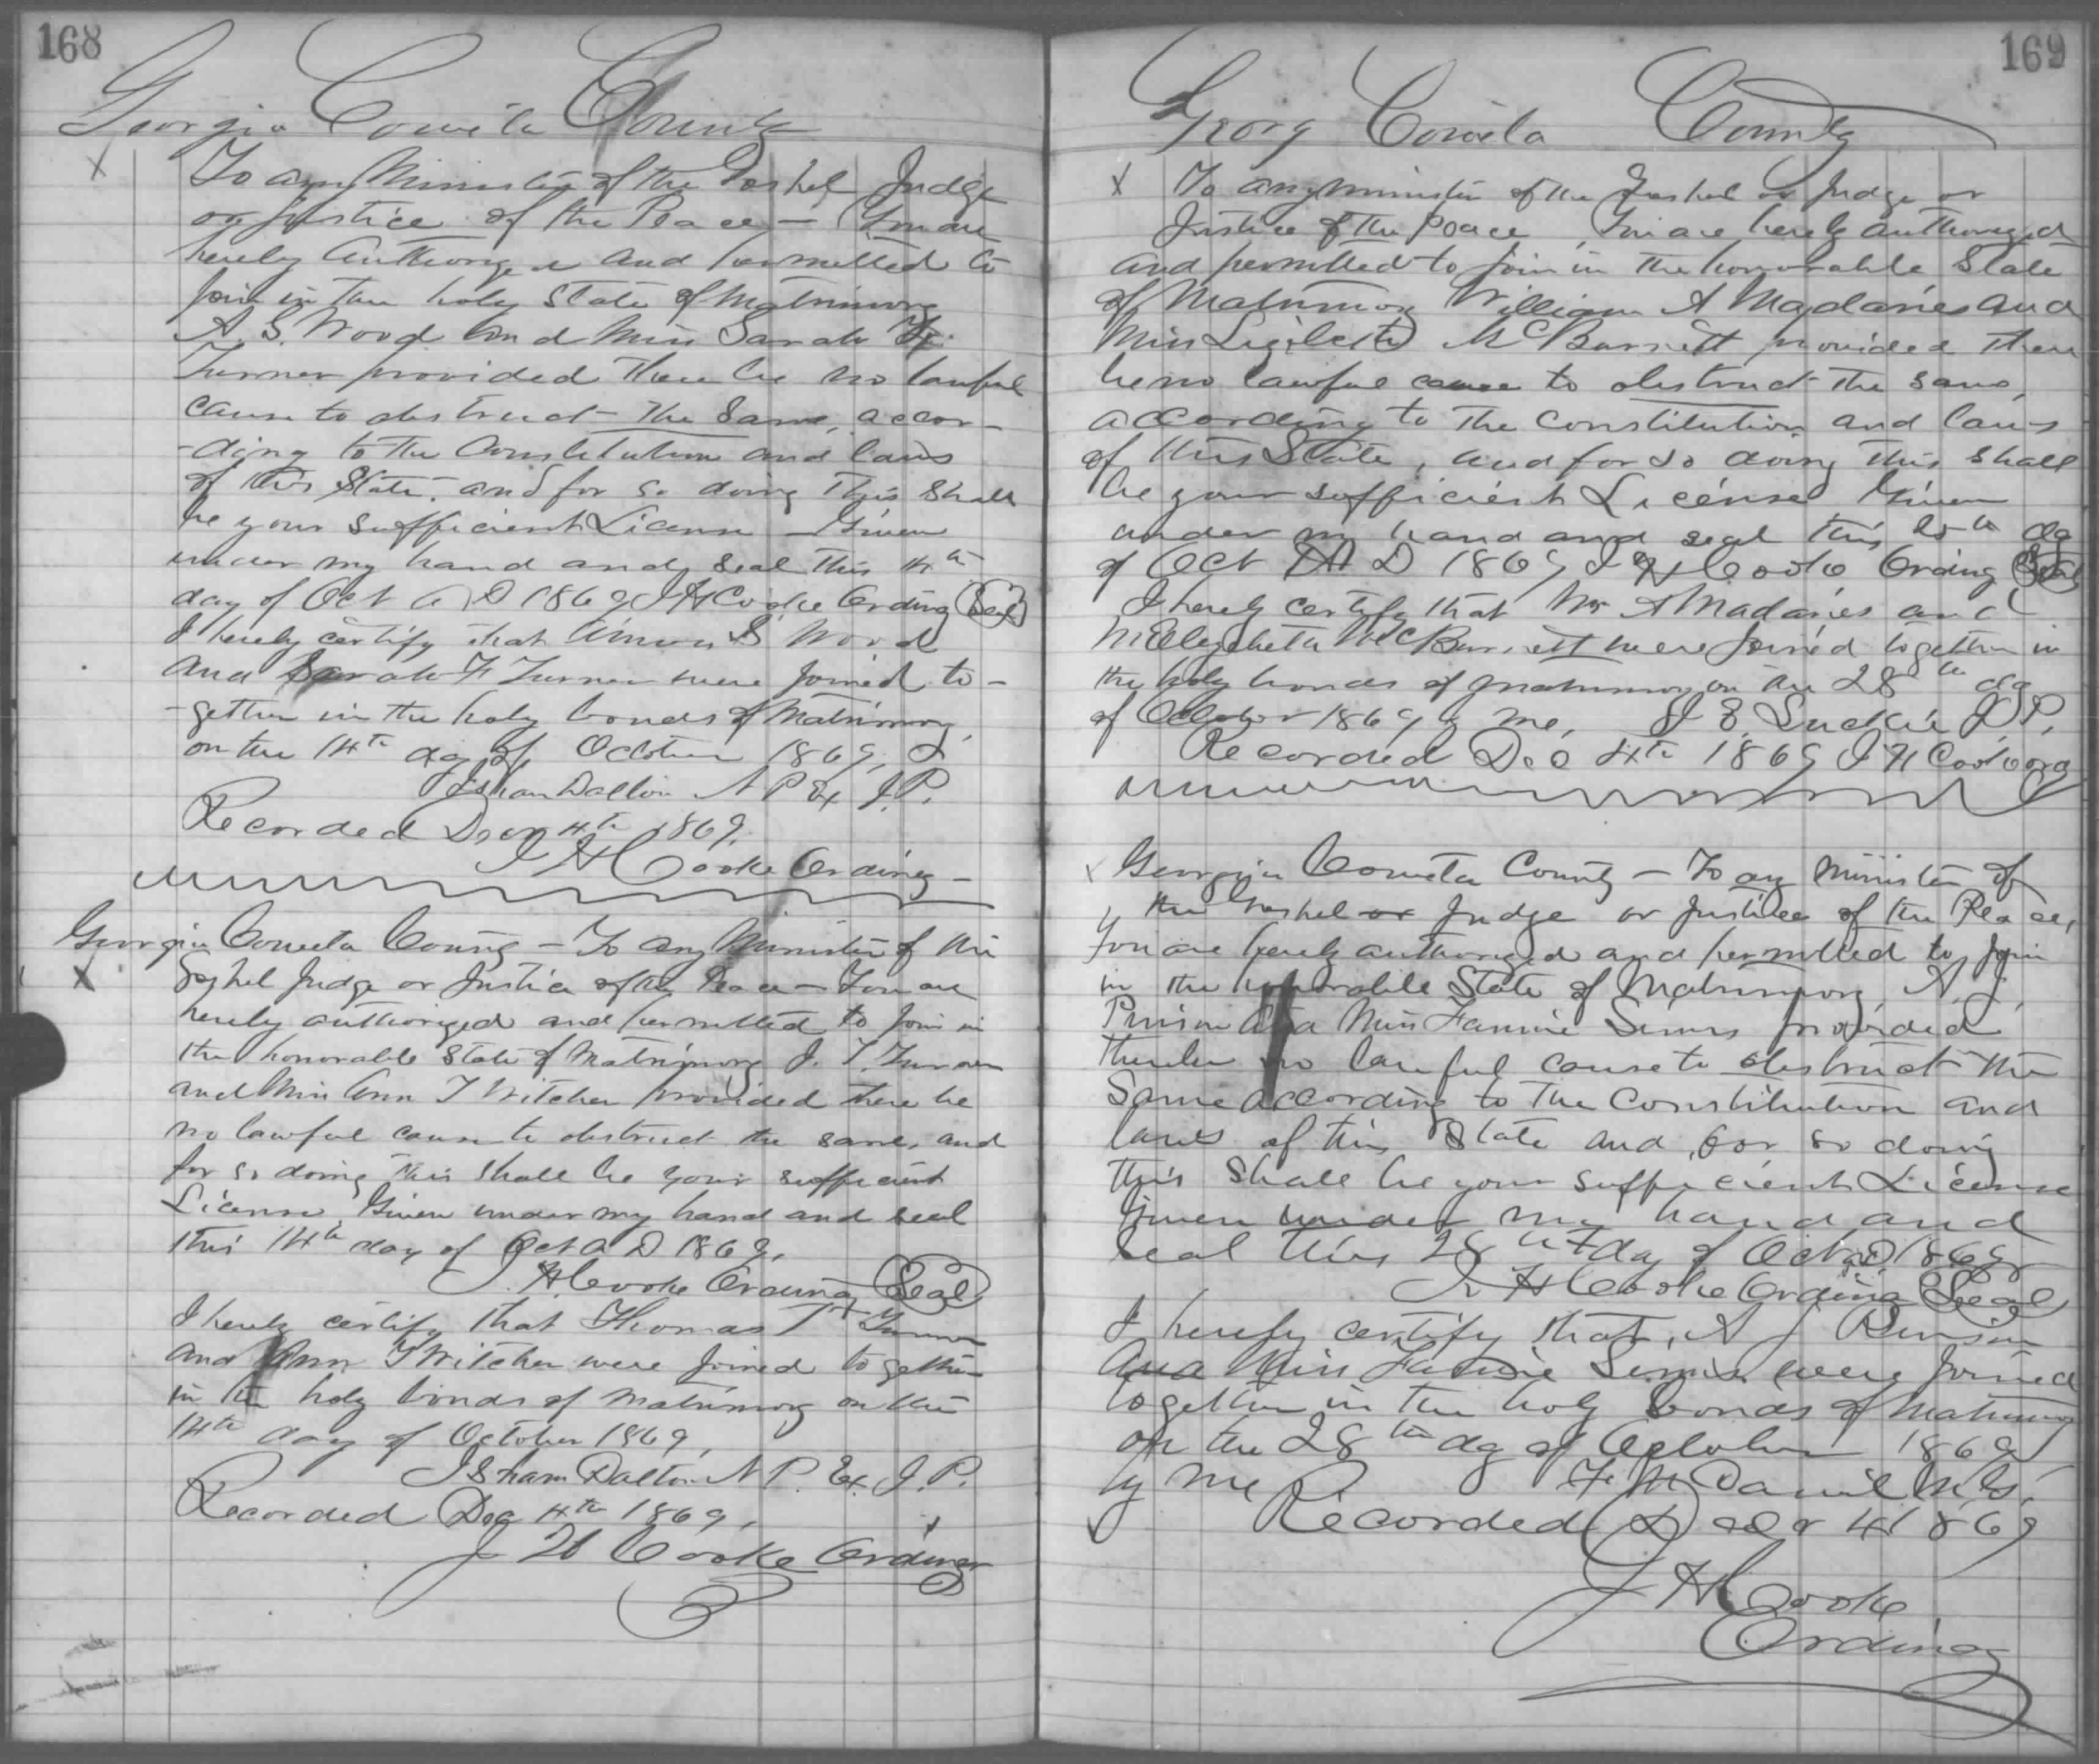 168
Georgia Coweta County
To any Minister of the Goshel Judge
or Justice of the Peace — You are
hereby Authorized and permitted to
join in the holy State of Matrimony
A. S. Wood and Miss Sarah F.
Turner provided there be no lawful
cause to obstruct the same, accor-
-ding to the Constitution and laws
of this State, and for so doing this shall
be your sufficient License — Given
under my hand and seal this 14th
day of Oct A D 1869 J H Cooke Ordiny (Seal)
I hereby certify that S Wood
and Sarah F Turner were joined to-
-gether in the holy bonds of Matrimony
on the 14th day of October 1869,
Isham Dalton N P Ex J.P.
Recorded Decr 4th 1869.
J H Cooke Ordiny —
Georgia Coweta County — To any Minister of the
Goshel Judge or Justice of the Peace — You are
hereby authorized and permitted to join in
the honorable State of Matrimony J. T. Turner
and Miss Ann T Witcher provided there be
no lawful cause to obstruct the same, and
for so doing this shall be your sufficient
License, Given under my hand and seal
this 14th day of Oct A D 1869.
J. H Cooke Ordinay (Seal)
I hereby certify that Thomas T Turner
and Ann T Witcher were joined together
in the holy bonds of matrimony on the
14th day of October 1869,
Isham Dalton N P. Ex. J. P.
Recorded Dec 4th 1869,
J H Cooke Ordinay
169
Georg Coweta County
To any minister of the Goshel or Judge or
Justice of the Peace, You are hereby authorized
and permitted to join in the honorable State
of Matrimony William A Madaries and
Miss McBurnett provided there
be no lawful cause to obstruct the same,
according to the Constitution and laws
of this State, and for so doing this shall
be your sufficient License Given
under my hand and seal this 25th day
of Oct A D 1869 J H Cooke Ordiny (Seal)
I hereby certify that Wm A Madaries and
McBurnett were joined together in
the holy bonds of matrimony on the 28th day
of October 1869 by me, J E Luckie J.P.
Recorded Dec 4th 1869 J H Cooke ord
Georgia Coweta County — To any Minister of
the Goshel or Judge or Justice of the Peace,
You are hereby authorized and permitted to join
in the honorable State of Matrimony, A. J.
Pinson and Miss Fannie Simms provided
there be no lawful cause to obstruct the
Same according to the Constitution and
laws of this State and for so doing
this shall be your sufficient License
Given under my hand and
seal this 28th day of Oct AD 1869
J H Cooke Ordinay Seal
I hereby certify that, A J Pinson
and Miss Fannie Simms were joined
together in the holy bonds of matrimony
on the 28th day of October 1869
by me F. M Daniel M. G.
Recorded Decr 4 1869
J H Cooke
Ordinay